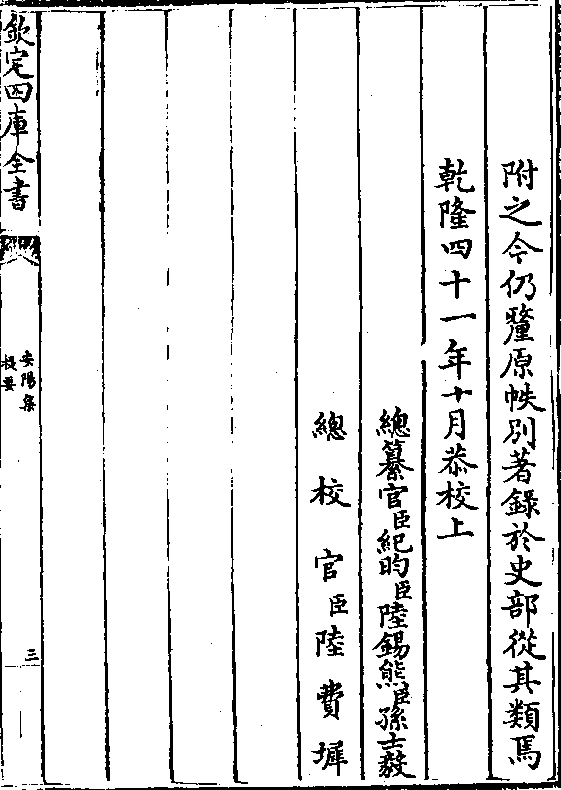 附之今仍釐原帙別著錄於史部從其類焉
乾隆四十一年十月恭校上
總纂官臣紀昀臣陸錫熊臣孫士毅
總校官臣陸費墀
欽定四庫全書
安陽集
提要
三